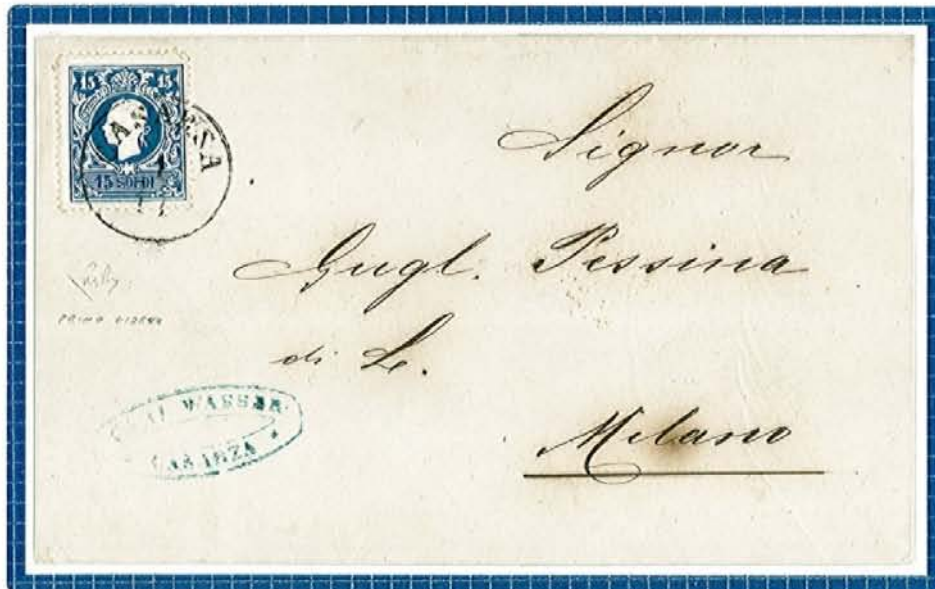 15 15
15 SOLDI
1
11
Signor
Gugl. Pessina
di L.
Milano
PRIMO GIORNO
WASSER